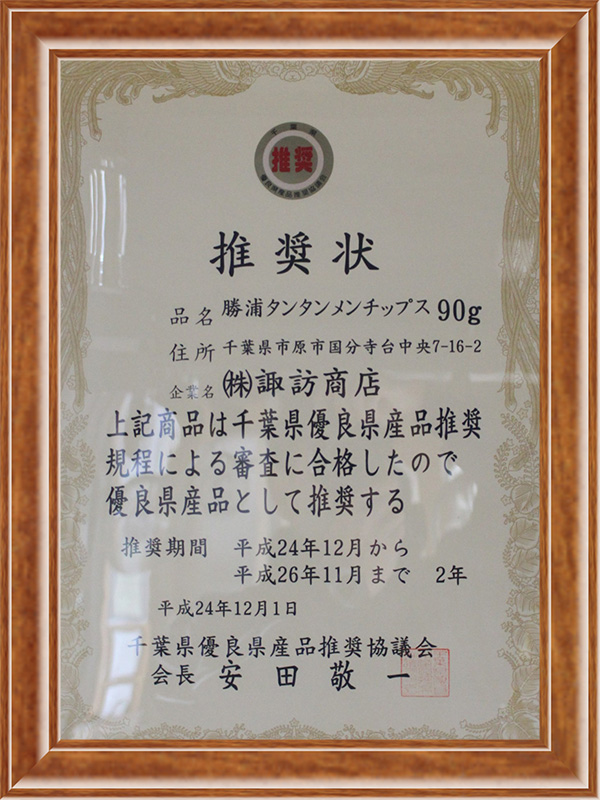 千葉県
推奨
推奨状
品名 勝浦タンタンメンチップス 90g
住所 千葉県市原市国分寺台中央7-16-2
企業名 ㈱諏訪商店
上記商品は千葉県優良県産品推奨
規程による審査に合格したので
優良県産品として推奨する
推奨期間 平成24年12月から
平成26年11月まで 2年
平成24年12月1日
千葉県優良県産品推奨協議会
会長 安田敬一